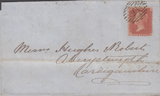 Messrs Hughes & Roberts
Aberystwyth
Cardiganshire